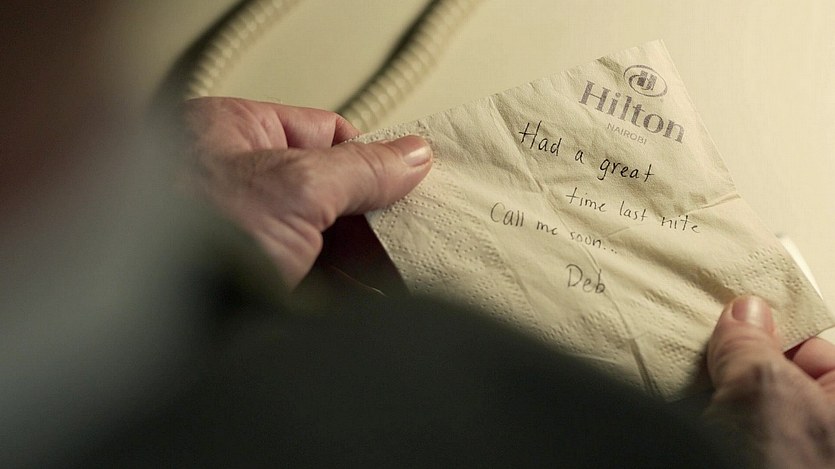 Hilton
NAIROBI
Had a great
time last nite
Call me soon...
Deb